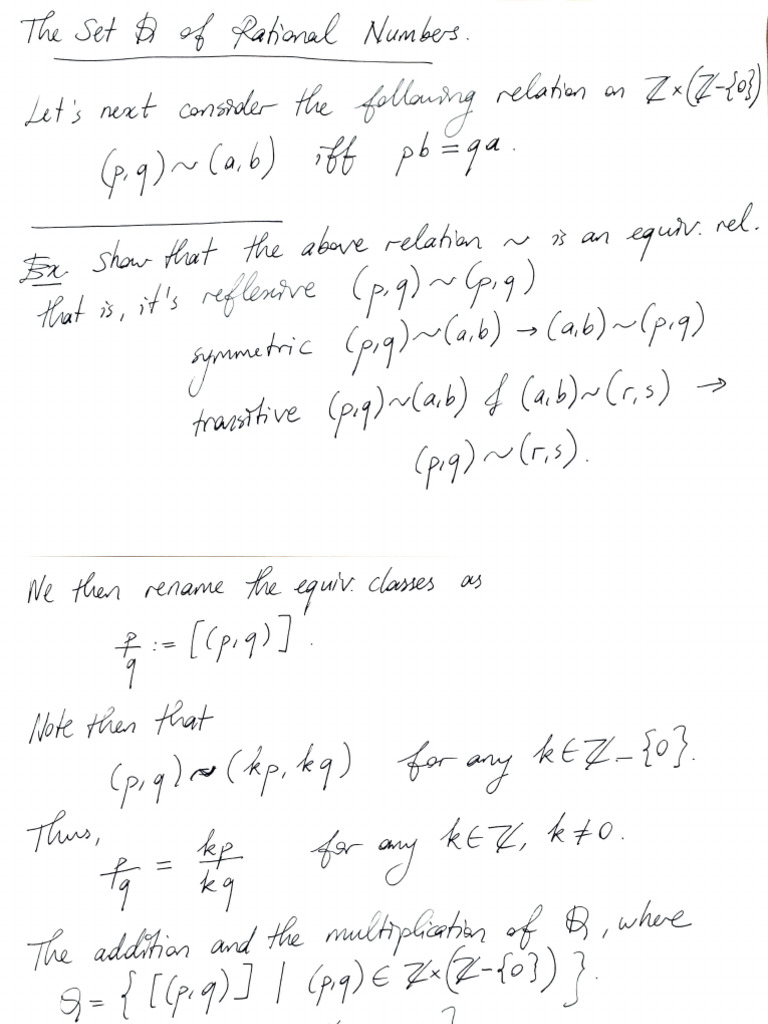 The Set ℚ of Rational Numbers.
Let's next consider the following relation on ℤ×(ℤ-{0})
(p,q)~(a,b) iff pb=qa.
Ex. Show that the above relation ~ is an equiv. rel.
that is, it's reflexive (p,q)~(p,q)
symmetric (p,q)~(a,b) → (a,b)~(p,q)
transitive (p,q)~(a,b) & (a,b)~(r,s) →
(p,q)~(r,s).
We then rename the equiv. classes as
p/q := [(p,q)].
Note then that
(p,q)~(kp,kq) for any k∈ℤ-{0}.
Thus,
p/q = kp/kq for any k∈ℤ, k≠0.
The addition and the multiplication of ℚ, where
ℚ={[(p,q)] | (p,q)∈ℤ×(ℤ-{0})}.